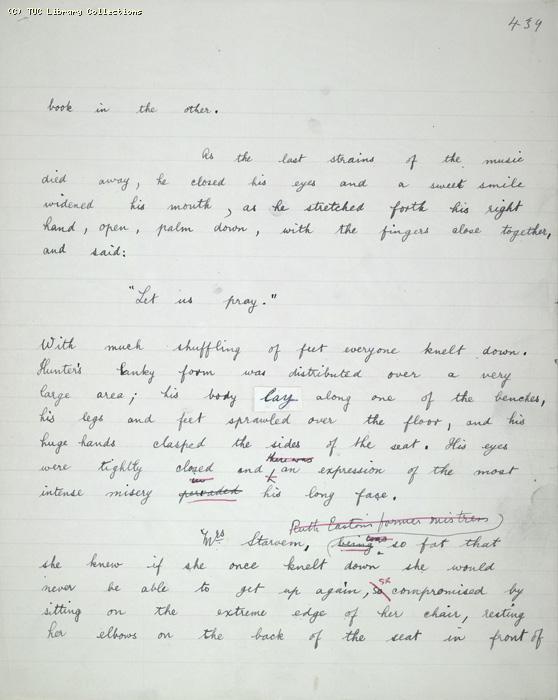 (C) TUC Library Collections
439
book in the other.
As the last strains of the music
died away, he closed his eyes and a sweet smile
widened his mouth, as he stretched forth his right
hand, open, palm down, with the fingers close together,
and said:
"Let us pray."
With much shuffling of feet everyone knelt down.
Hunter's lanky form was distributed over a very
large area; his body lay along one of the benches,
his legs and feet sprawled over the floor, and his
huge hands clasped the sides of the seat. His eyes
there was
were tightly closed and an expression of the most
intense misery pervaded his long face.
Ruth Easton's former mistress
Mrs Starvem, being was so fat that
she knew if she once knelt down she would
never be able to get up again, so compromised by
sitting on the extreme edge of her chair, resting
her elbows on the back of the seat in front of